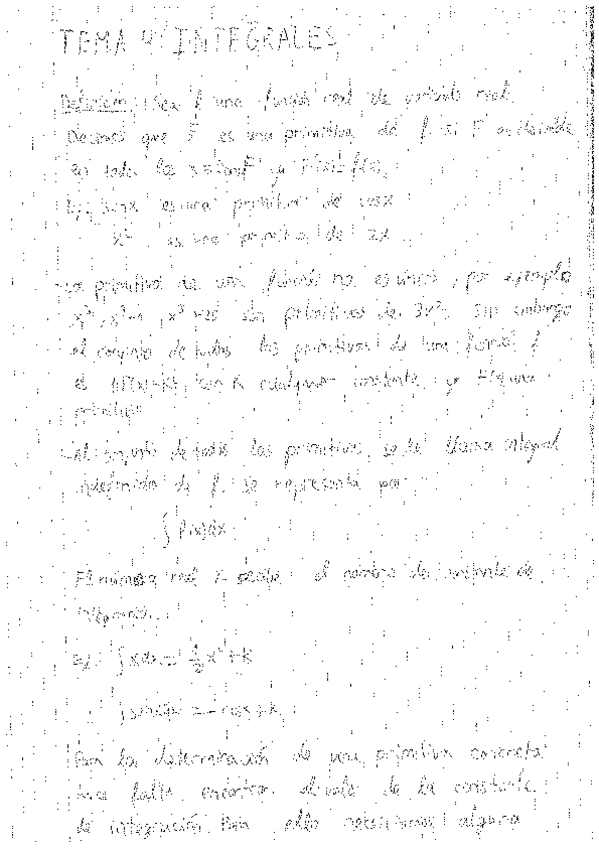 TEMA 4: INTEGRALES
Definición: Sea f una función real de variable real.
Decimos que F es una primitiva de f si F es derivable
en todo los x ∈ Dom F y F'(x)=f(x).
Ej: senx es una primitiva de cosx
x² es una primitiva de 2x
-La primitiva de una función no es única, por ejemplo
x³, x³+1, x³+25 son primitivas de 3x². Sin embargo
el conjunto de todas las primitivas de una función f
es F(x)+K, con K cualquier constante y F una
primitiva
-Al conjunto de todas las primitivas se le llama integral
indefinida de f. Se representa por
∫ f(x)dx
El número real K recibe el nombre de constante de
integración.
Ej: ∫xdx = ½x²+K
∫senxdx = -cosx+K
Para la determinación de una primitiva concreta
hace falta encontrar el valor de la constante
de integración. Para ello necesitamos alguna